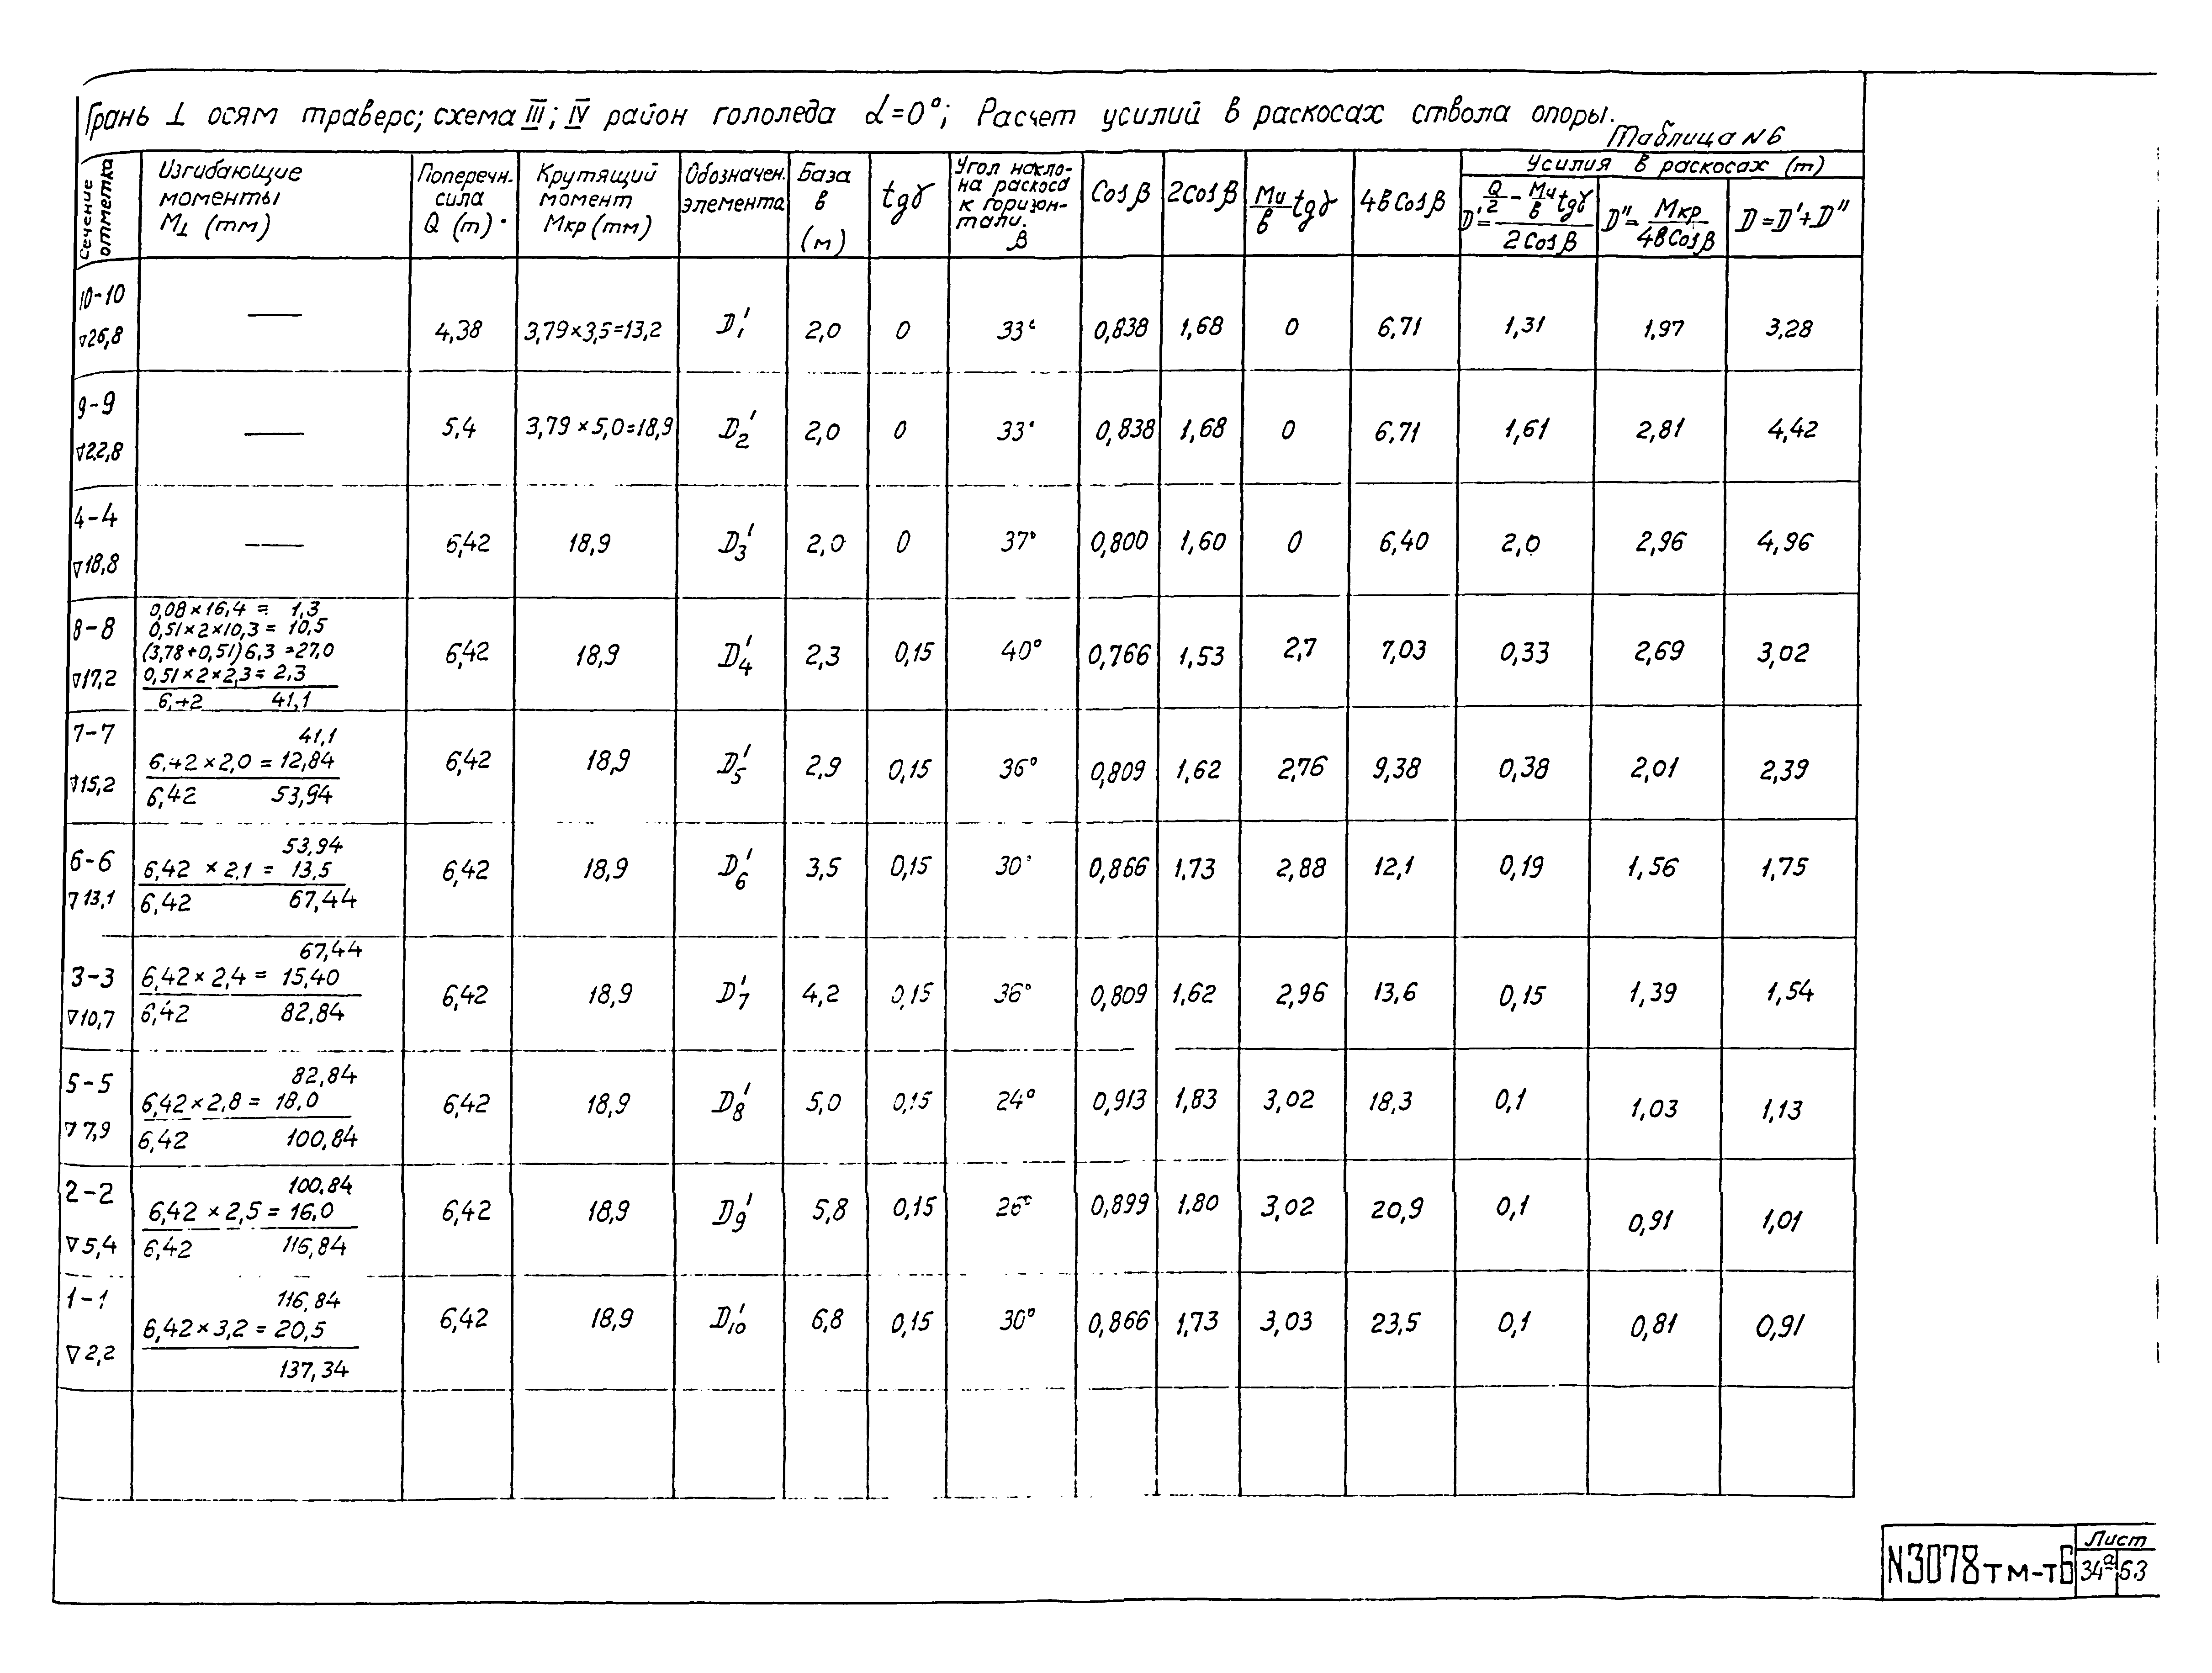 Грань ⊥ осям траверс; схема III; IV район гололеда α=0°; Расчет усилий в раскосах ствола опоры.
Таблица N6
Сечение отметка | Изгибающие моменты M⊥ (тм) | Поперечн. сила Q (т) | Крутящий момент Мкр (тм) | Обозначен. элемента | База в (м) | tgγ | Угол накло-на раскоса к горизон-тали. β | Cosβ | 2Cosβ | Mи/в tgγ | 4вCosβ | Усилия в раскосах (т)
D' = (Q/2 - Mи/в tgγ) / 2Cosβ | D'' = Мкр / 4вCosβ | D = D' + D''
10-10 ▽26,8 | — | 4,38 | 3,79×3,5=13,2 | D₁' | 2,0 | 0 | 33° | 0,838 | 1,68 | 0 | 6,71 | 1,31 | 1,97 | 3,28
9-9 ▽22,8 | — | 5,4 | 3,79×5,0=18,9 | D₂' | 2,0 | 0 | 33° | 0,838 | 1,68 | 0 | 6,71 | 1,61 | 2,81 | 4,42
4-4 ▽18,8 | — | 6,42 | 18,9 | D₃' | 2,0 | 0 | 37° | 0,800 | 1,60 | 0 | 6,40 | 2,0 | 2,96 | 4,96
0,08×16,4 = 1,3
0,51×2×10,3 = 10,5
(3,78+0,51)6,3 = 27,0
0,51×2×2,3 = 2,3
6,42 41,1
8-8 ▽17,2 | 6,42 | 18,9 | D₄' | 2,3 | 0,15 | 40° | 0,766 | 1,53 | 2,7 | 7,03 | 0,33 | 2,69 | 3,02
41,1
6,42×2,0 = 12,84
6,42 53,94
7-7 ▽15,2 | 6,42 | 18,9 | D₅' | 2,9 | 0,15 | 36° | 0,809 | 1,62 | 2,76 | 9,38 | 0,38 | 2,01 | 2,39
53,94
6,42 × 2,1 = 13,5
6,42 67,44
6-6 ▽13,1 | 6,42 | 18,9 | D₆' | 3,5 | 0,15 | 30° | 0,866 | 1,73 | 2,88 | 12,1 | 0,19 | 1,56 | 1,75
67,44
6,42×2,4 = 15,40
6,42 82,84
3-3 ▽10,7 | 6,42 | 18,9 | D₇' | 4,2 | 0,15 | 36° | 0,809 | 1,62 | 2,96 | 13,6 | 0,15 | 1,39 | 1,54
82,84
6,42×2,8 = 18,0
6,42 100,84
5-5 ▽7,9 | 6,42 | 18,9 | D₈' | 5,0 | 0,15 | 24° | 0,913 | 1,83 | 3,02 | 18,3 | 0,1 | 1,03 | 1,13
100,84
6,42 × 2,5 = 16,0
6,42 116,84
2-2 ▽5,4 | 6,42 | 18,9 | D₉' | 5,8 | 0,15 | 26° | 0,899 | 1,80 | 3,02 | 20,9 | 0,1 | 0,91 | 1,01
116,84
6,42×3,2 = 20,5
137,34
1-1 ▽2,2 | 6,42 | 18,9 | D₁₀' | 6,8 | 0,15 | 30° | 0,866 | 1,73 | 3,03 | 23,5 | 0,1 | 0,81 | 0,91
N3078тм-т6
Лист
34а 53